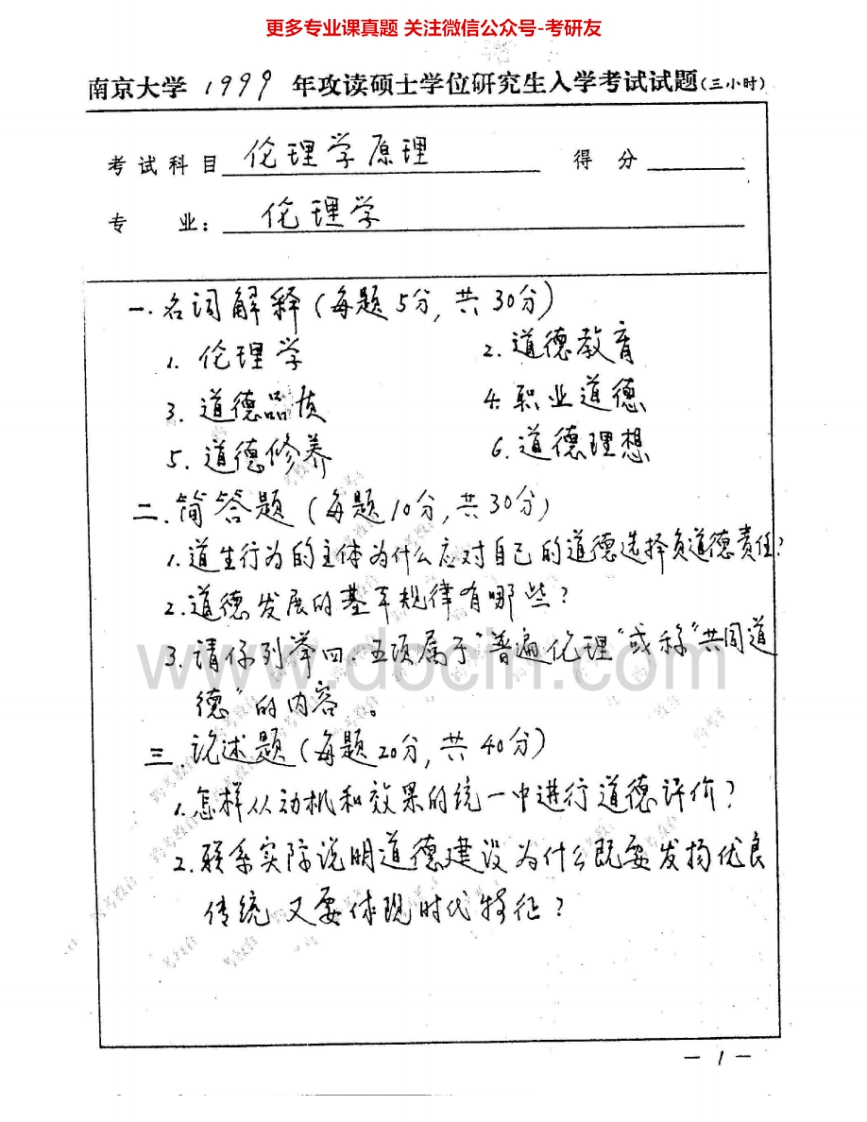 更多专业课真题 关注微信公众号-考研友
南京大学 1999 年攻读硕士学位研究生入学考试试题(三小时)
考试科目 伦理学原理 得 分
专 业: 伦理学
一.名词解释(每题5分,共30分)
1. 伦理学 2. 道德教育
3. 道德品质 4. 职业道德
5. 道德修养 6. 道德理想
二.简答题(每题10分,共30分)
1.道生行为的主体为什么应对自己的道德选择负道德责任?
2.道德发展的基本规律有哪些?
3.请你列举四、五项属于“普遍伦理”或称“共同道
德”的内容。
三.论述题(每题20分,共40分)
1.怎样从动机和效果的统一中进行道德评价?
2.联系实际说明道德建设为什么既要发扬优良
传统又要体现时代特征?
www.docin.com
跨考教育
- 1 -